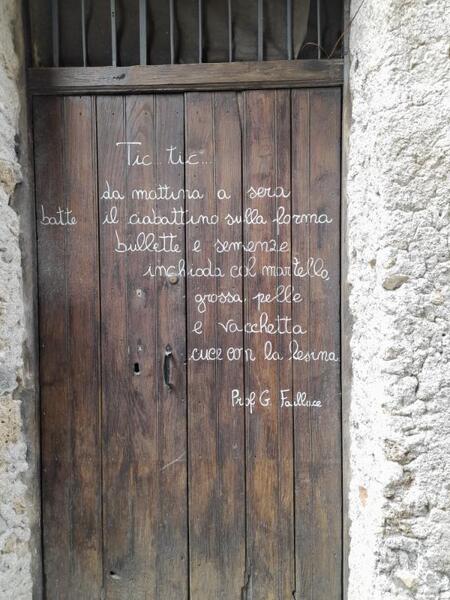 Tic... tic...
da mattina a sera
batte il ciabattino sulla forma
bullette e semenze
inchioda col martello
grossa pelle
e vacchetta
cuce con la lesina
Prof. G. Faillace